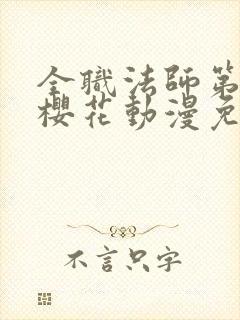 全職法師第
櫻花動漫免
不言只字